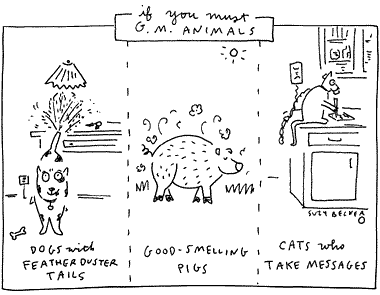 if you must
G.M. ANIMALS
DOGS with
FEATHER DUSTER
TAILS
GOOD-SMELLING
PIGS
CATS who
TAKE MESSAGES
SUZY BECKER